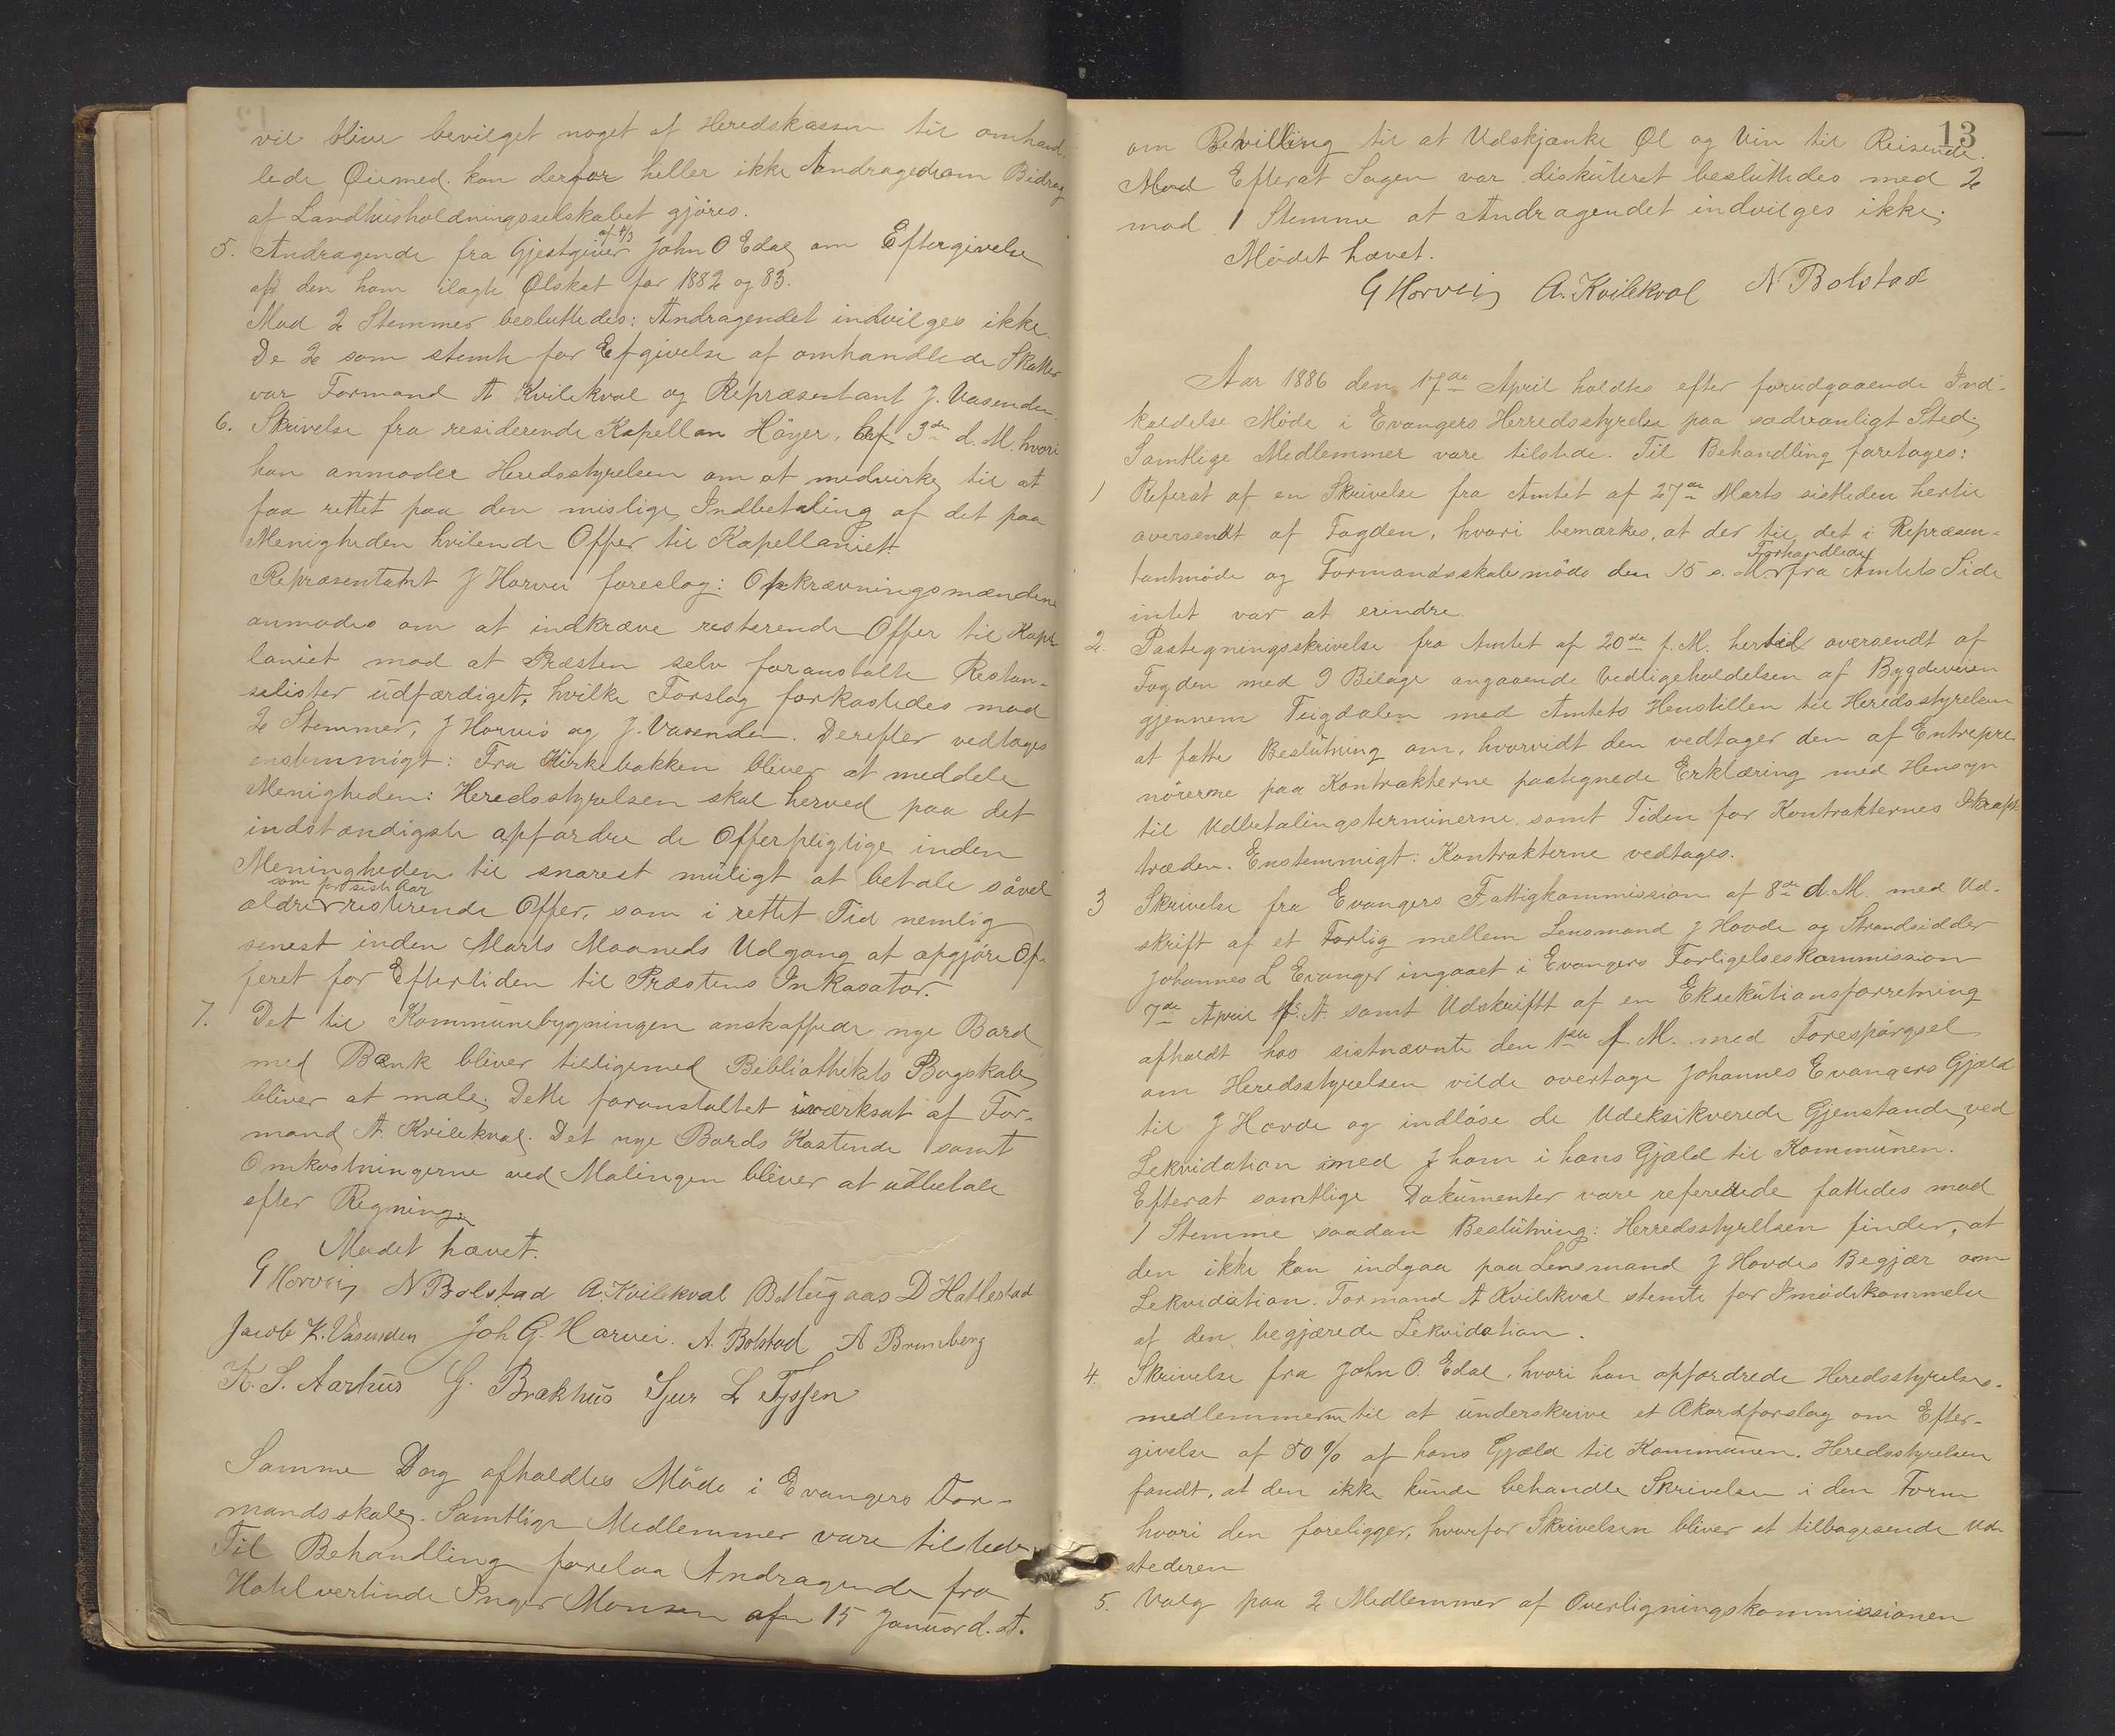 vil blive bevilget noget af Heredskassen til omhand-
lede Øiemed. kan derfor heller ikke Andragede om Bidrag
af Landhusholdningsselskabet gjöres.
5. Andragende fra Gjestgiver af 4/3 John O Edal om Eftergivelse
af den ham ilagte Ølskat for 1882 og 83.
Mod 2 Stemmer besluttedes: Andragendet indvilges ikke.
De 2 som stemte for Efgivelse af omhandlede Skatter
var Formand A Kvilekval og Repræsentant J. Vasenden.
6. Skrivelse fra residerende Kapellan Höyer, af 3de d. M. hvori
han anmoder Heredsstyrelsen om at medvirke til at
faa rettet paa den mislige Indbetaling af det paa
Menigheden hvilende Offer til Kapellaniet
Repræsentant J Horvei foreslog: Opkrævningsmændene
anmodes om at indkræve resterende Offer til Kapel
laniet mod at Præsten selv foranstalte Restan-
selister üdfærdiget, hvilke Forslag forkastedes mod
2 Stemmer, J Horvei og J. Vasenden. Derefter vedtoges
enstemmigt: Fra Kirkebakken bliver at meddele
Menigheden: Heredsstyrelsen skal herved paa det
indstændigste opfordre de Offerpligtige inden
Meningheden til snarest müligt at betale såvel
ældre som for sidste Aar resterende Offer, som i rettet Tid nemlig
senest inden Marts Maaneds Udgang at opgjöre Of-
feret for Eftertiden til Præstens Inkasator.
7. Det til Kommünebygningen anskaffede nye Bord
med Bænk bliver tilligemed Bibliothekets Bogskab
bliver at male. Dette foranstaltet iværksat af For-
mand A. Kvilekval. Det nye Bords Kostende samt
Omkostningerne ved Malingen bliver at üdbetale
efter Regning.
Mødet hævet.
G Horvei N Bolstad A. Kvilekval B Mügaas D Hallestad
Jacob K. Vasenden Joh G. Horvei. A. Bolstad A Brunberg
K. S. Aarhus G. Brækhus Sjur L Fyssen
Samme Dag afholdtes Möde i Evangers For-
mandsskab. Samtlige Medlemmer vare tilstede
Til Behandling forelaa Andragende fra
Hotelvertinde Inger Monsen af 15 Januar d. A.
13
om Bevilling til at Udskjænke Øl og Vin til Reisende.
Mod Efterat Sagen var diskuteret besluttedes med 2
mod 1 Stemme at Andragendet indvilges ikke.
Mödet hævet.
G Horvei A. Kvilekval N. Bolstad
Aar 1886 den 17de April holdtes efter forudgaaende Ind-
kaldelse Møde i Evangers Herredsstyrelse paa sædvanligt Sted.
Samtlige Medlemmer vare tilstede. Til Behandling foretages:
1 Referat af en Skrivelse fra Amtet af 27de Marts sistleden hertil
oversendt af Fogden, hvori bemærkes, at der til det i Repræsen-
tantmöde og Formandsskabsmöde den 15 s. M. Forhandlede fra Amtets Side
intet var at erindre
2. Paategningsskrivelse fra Amtet af 20de f. M. hertil oversendt af
Fogden med 9 Bilage angaaende Vedligeholdelsen af Bygdeveien
gjennem Teigdalen med Amtets Henstillen til Heredsstyrelsen
at fatte Beslutning om, hvorvidt den vedtager den af Entrepre-
nörerne paa Kontrakterne paategnede Erklæring med Hensyn
til Udbetalingsterminerne samt Tiden for Kontrakternes Ikraft-
træden. Enstemmigt: Kontrakterne vedtages.
3 Skrivelse fra Evangers Fattigkommission af 8de d. M. med Ud-
skrift af et Forlig mellem Lensmand J Hovde og Strandsidder
Johannes L Evanger ingaaet i Evangers Forligelseskommission
7de April f. A. samt Udskrift af en Eksekütionsforretning
afholdt hos sistnævnte den 1ste f. M. med Forespörgsel
om Heredsstyrelsen vilde overtage Johannes Evangers Gjæld
til J Hovde og indlöse de Udeksikverede Gjenstande ved
Lekvidation med J ham i hans Gjæld til Kommünen.
Efterat samtlige Dokümenter vare refererede fattedes mod
1 Stemme saadan Beslütning: Herredsstyrelsen finder, at
den ikke kan indgaa paa Lensmand J Hovdes Begjær om
Lekvidation. Formand A Kvilekval stemte for Imødekommelse
af den begjærede Lekvidation.
4. Skrivelse fra John O. Edal, hvori han opfordrede Heredsstyrelses-
medlemmerne til at ünderskrive et Akordforslag om Efter-
givelse af 50 % af hans Gjæld til Kommünen. Heredsstyrelsen
fandt, at den ikke kunde behandle Skrivelsen i den Form
hvori den foreligger, hvorfor Skrivelsen bliver at tilbagesende Ud-
stederen
5. Valg paa 2 Medlemmer af Overligningskommissionen